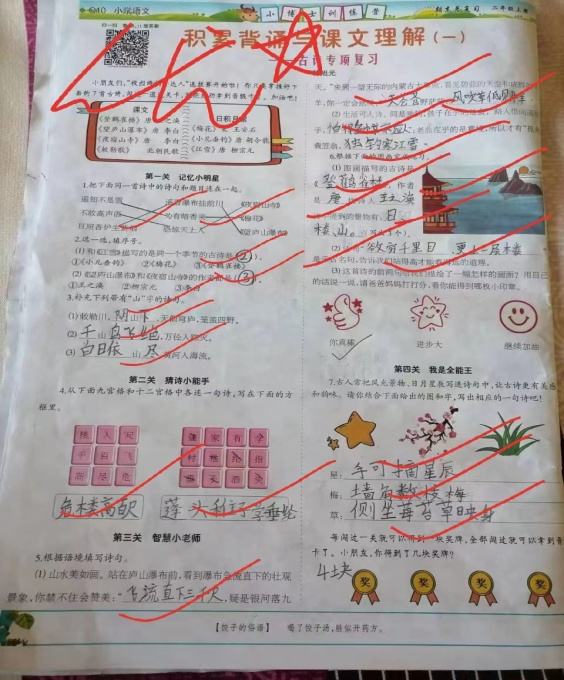 小学语文
小博士训练营
期末总复习 二年级上册
积累背诵与课文理解（一）
古诗专项复习
课文
日积月累
《登鹳雀楼》 唐 王之涣
《望庐山瀑布》 唐 李白
《夜宿山寺》 唐 李白
《敕勒歌》 北朝民歌
《梅花》 宋 王安石
《小儿垂钓》 唐 胡令能
《江雪》 唐 柳宗元
第一关 记忆小明星
1.把下面同一首诗中的诗句和题目连在一起。
遥知不是雪
遥看瀑布挂前川
《夜宿山寺》
不敢高声语
为有暗香来
《梅花》
日照香炉生紫烟
恐惊天上人
《望庐山瀑布》
2.选一选,填序号。
(1)和《江雪》描写的是同一个季节的古诗是(②)。
①《小儿垂钓》 ②《梅花》 ③《登鹳雀楼》
(2)《望庐山瀑布》和《夜宿山寺》的作者都是(③)。
①王之涣 ②柳宗元 ③李白
3.补充下列带有“山”字的诗句。
(1)敕勒川,阴山下,天似穹庐,笼盖四野。
(2)千山鸟飞绝,万径人踪灭。
(3)白日依山尽,黄河入海流。
第二关 猜诗小能手
4.从下面九宫格和十二宫格中各选一句诗,写在下面的方
框里。
危楼高百尺
蓬头稚子学垂纶
第三关 智慧小老师
5.根据语境填写诗句。
(1)山水美如画。站在庐山瀑布前,看到瀑布急流直下的壮观
景象,你禁不住会赞美:“飞流直下三千尺,疑是银河落九
天。”
6.根据下面的图画完成练习。
(1)图画描写的古诗是
《登鹳雀楼》,作者
是唐代诗人王之涣
欲穷千里目,更上一层楼
(3)这首诗的前两句给我们描绘了一幅怎样的画面?用自己
的话说一说,请爸爸妈妈打打分,看你能得到哪枚小印章。
你真棒
进步大
继续加油
第四关 我是全能王
7.古人常把风光景物、日月星辰写进诗句中,让古诗更有美感
和韵味。请你结合下面给出的图和字,写出相应的一句诗吧!
星:手可摘星辰
梅:墙角数枝梅
草:侧坐莓苔草映身
每闯过一关就可以得到一块奖牌,全部闯过就可以拿到晋级
卡了。小朋友,你得到了几块奖牌?
4块
奖 奖 奖 奖
【饺子的俗语】 喝了饺子汤,胜似开药方。